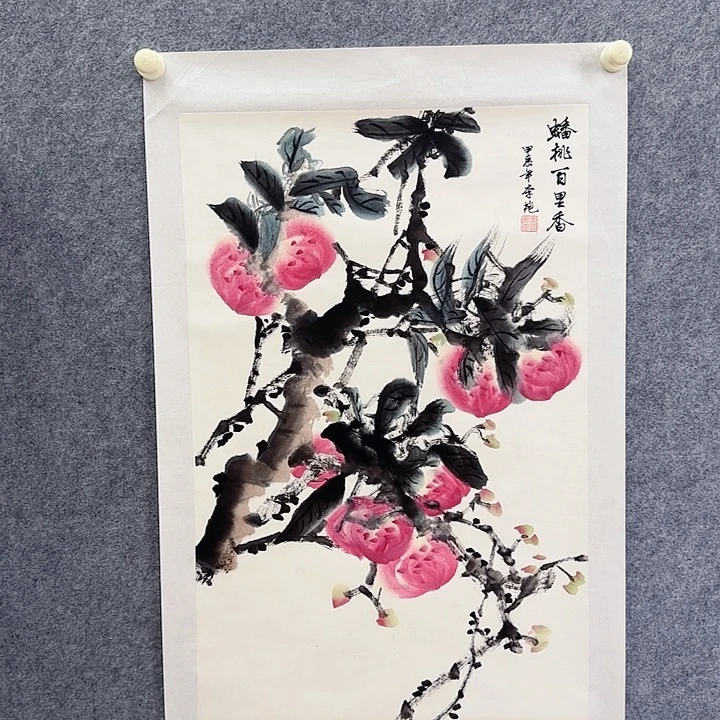 蟠桃百里香
甲辰年李苑